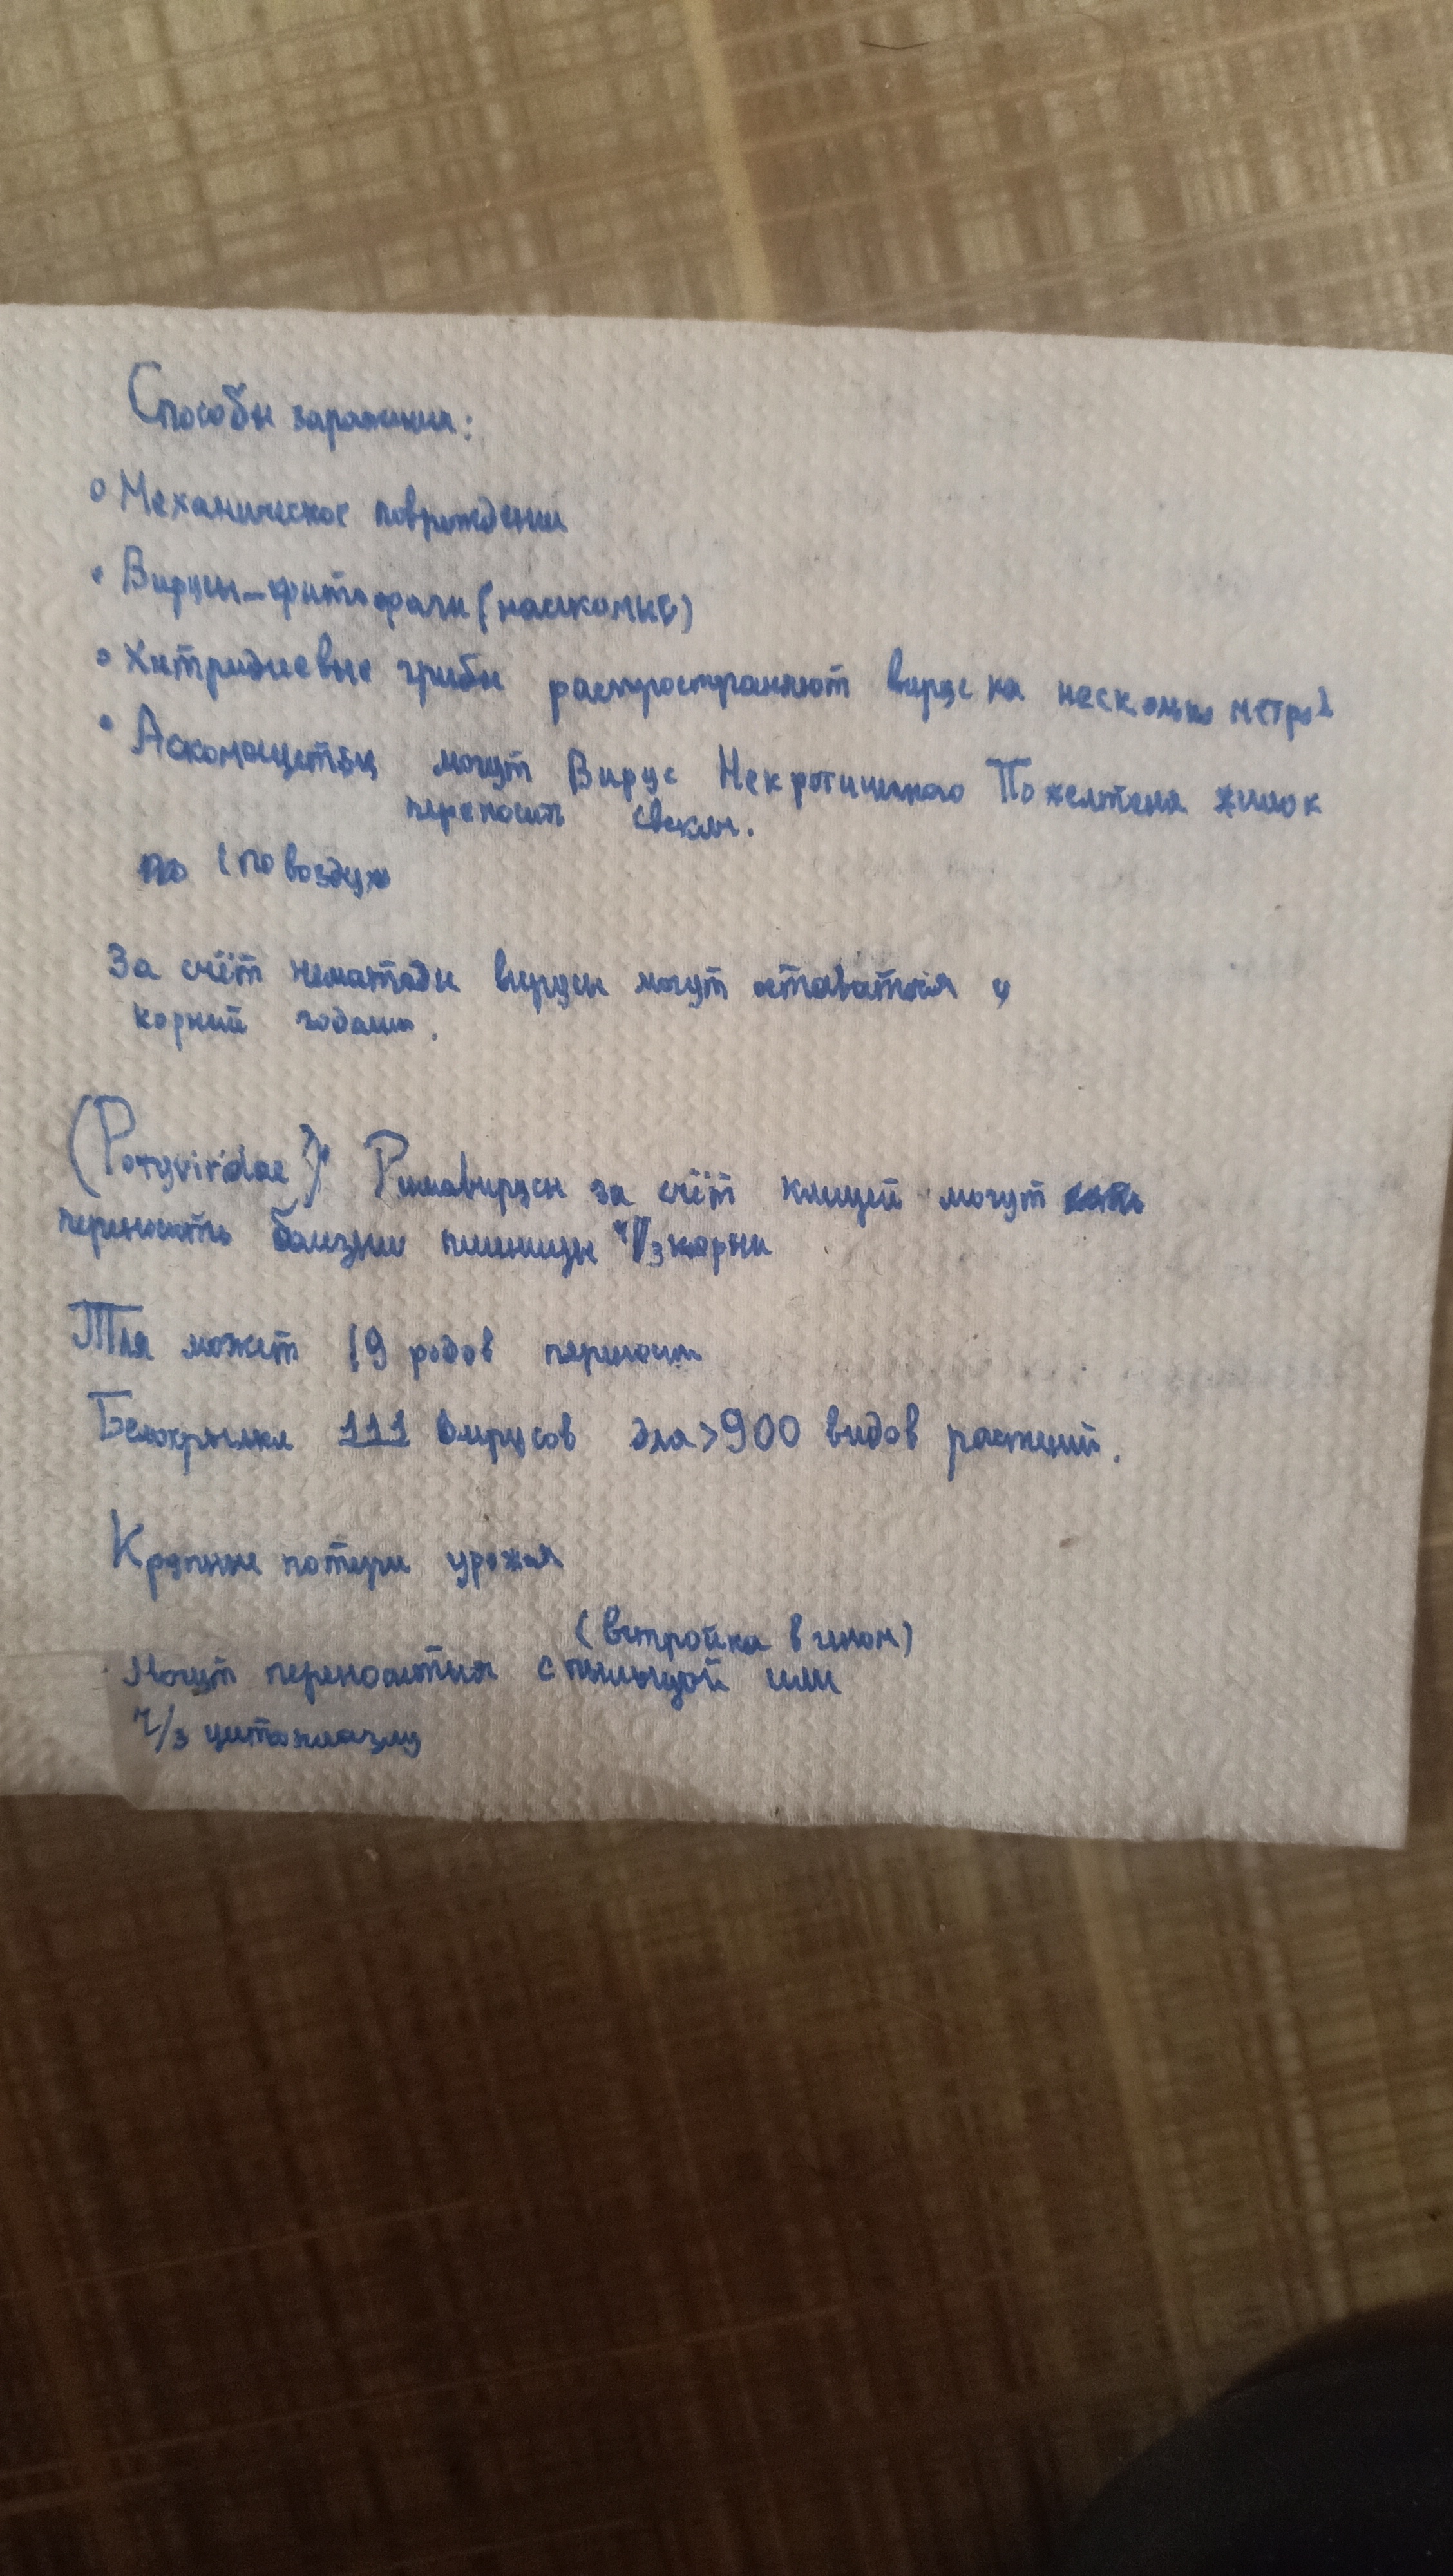 Способы заражения:
Механическое повреждение
Вирусы-фитофаги (насекомые)
Хитридиевые грибы распространяют вирус на несколько метров
Аскомицеты могут Вирус Некротического Пожелтения жилок
переносить свеклы.
(по воздуху
За счёт нематоды вирусы могут оставаться у
корней годами.
(Potyviridae) Римавирусы за счёт клещей могут
переносить болезни пшеницы ч/з корни
Тля может 19 родов переносить
Белокрылки 111 вирусов для >900 видов растений.
Крупные потери урожая
(встройка в геном)
Могут переносится с пыльцой или
ч/з цитоплазму